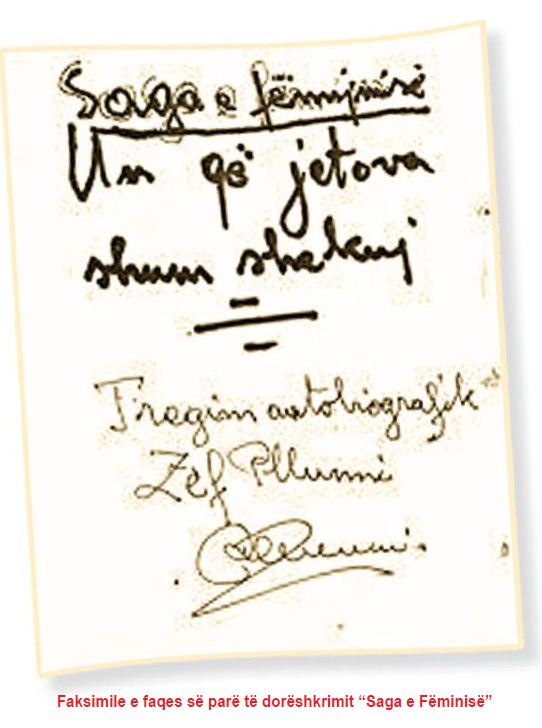 Saga e fëmijnisë
Un që jetova
shum shekuj
Tregim autobiografik
Zef Pllumi
Faksimile e faqes së parë të dorëshkrimit “Saga e Fëminisë”